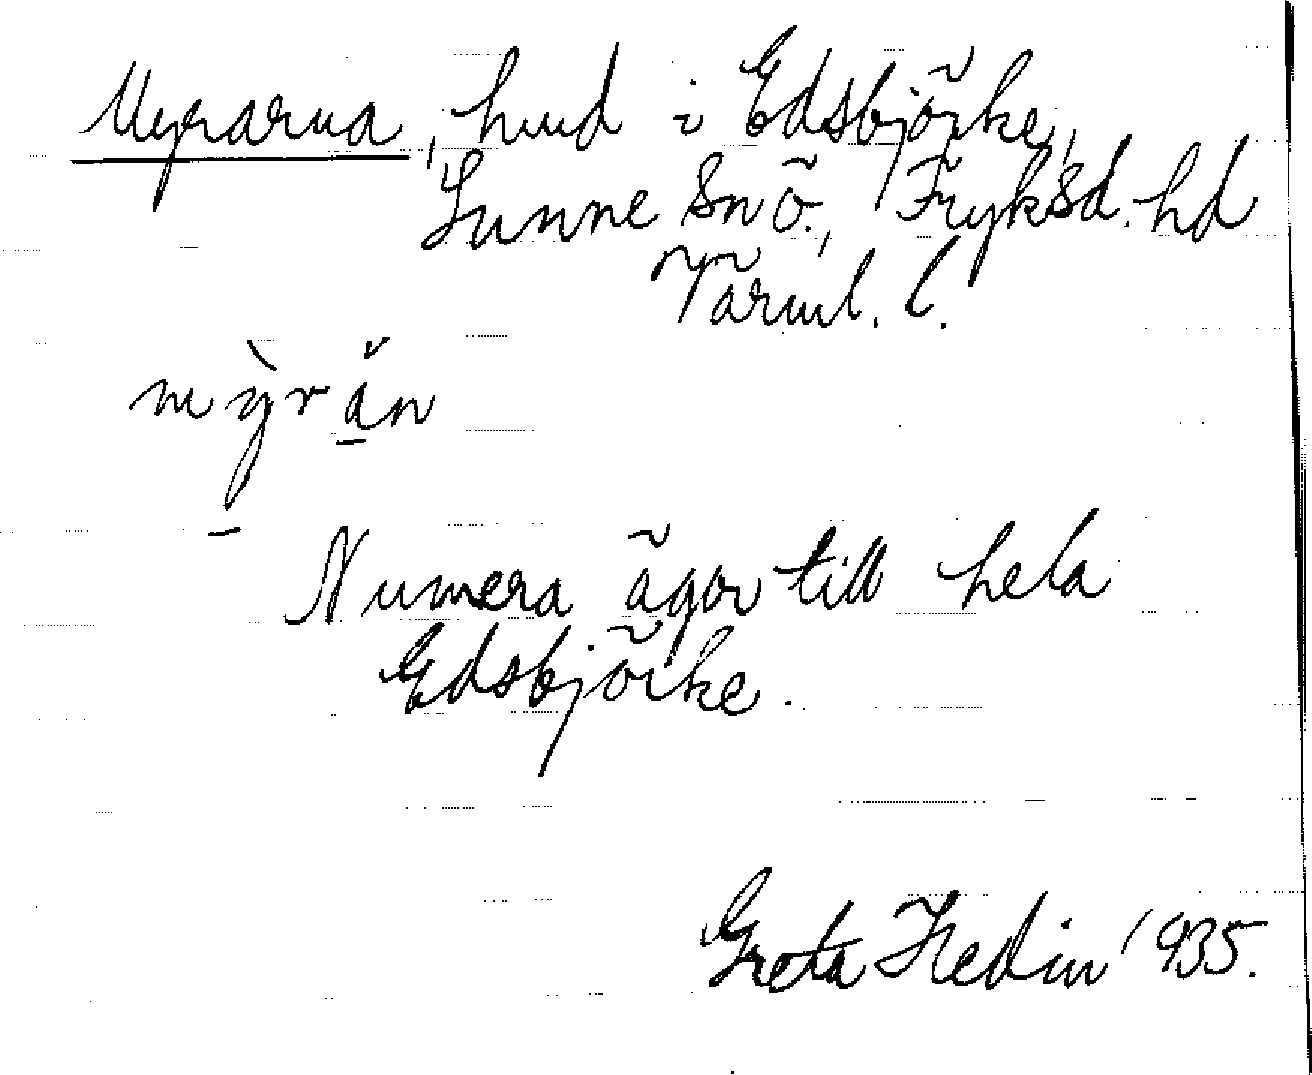 Myrarna, hmd i Edsbjörke,
Sunne sn ö., Fryksd. hd
Värml. l.
mỳrăn
Numera ägor till hela
Edsbjörke.
Greta Hedin 1935.